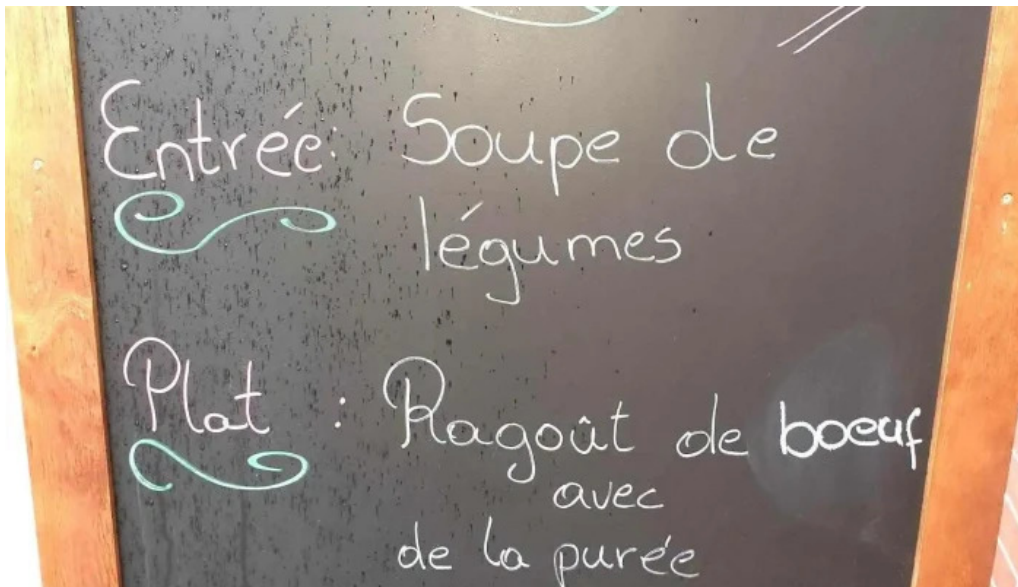 Entrée: Soupe de
légumes
Plat : Ragoût de boeuf
avec
de la purée